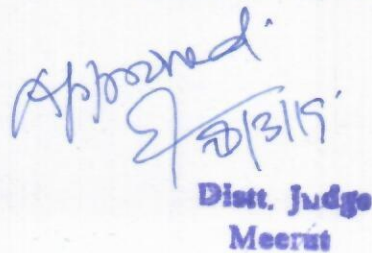 Approved.
20/3/19.
Distt. Judge
Meerut